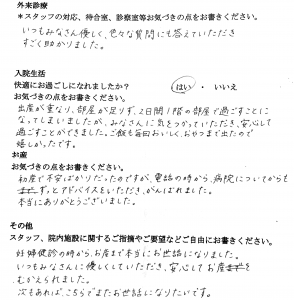 外来診療
＊スタッフの対応、待合室、診察室等お気づきの点をお書きください。
いつもみなさん優しく、色々な質問にも答えていただき
すごく助かりました。
入院生活
快適にお過ごしになれましたか？ はい ・ いいえ
お気づきの点をお書きください。
出産が重なり、部屋が足りず、2日間1階の部屋で過ごすことに
なってしまいましたが、みなさんに気をつかっていただき、安心して
過ごすことができました。ご飯も毎回おいしく、おやつまで出たので
嬉しかったです。
お産
お気づきの点をお書きください。
初産で不安ばかりだったのですが、電話の時から、病院についてからも
ずっとアドバイスをいただき、がんばれました。
本当にありがとうございました。
その他
スタッフ、院内施設に関するご指摘やご要望などご自由にお書きください。
妊婦健診の時から、お産まで本当にお世話になりました。
いつもみなさんに優しくしていただき、安心してお産を
むかえられました。
次もあれば、こちらでまたお世話になりたいです。